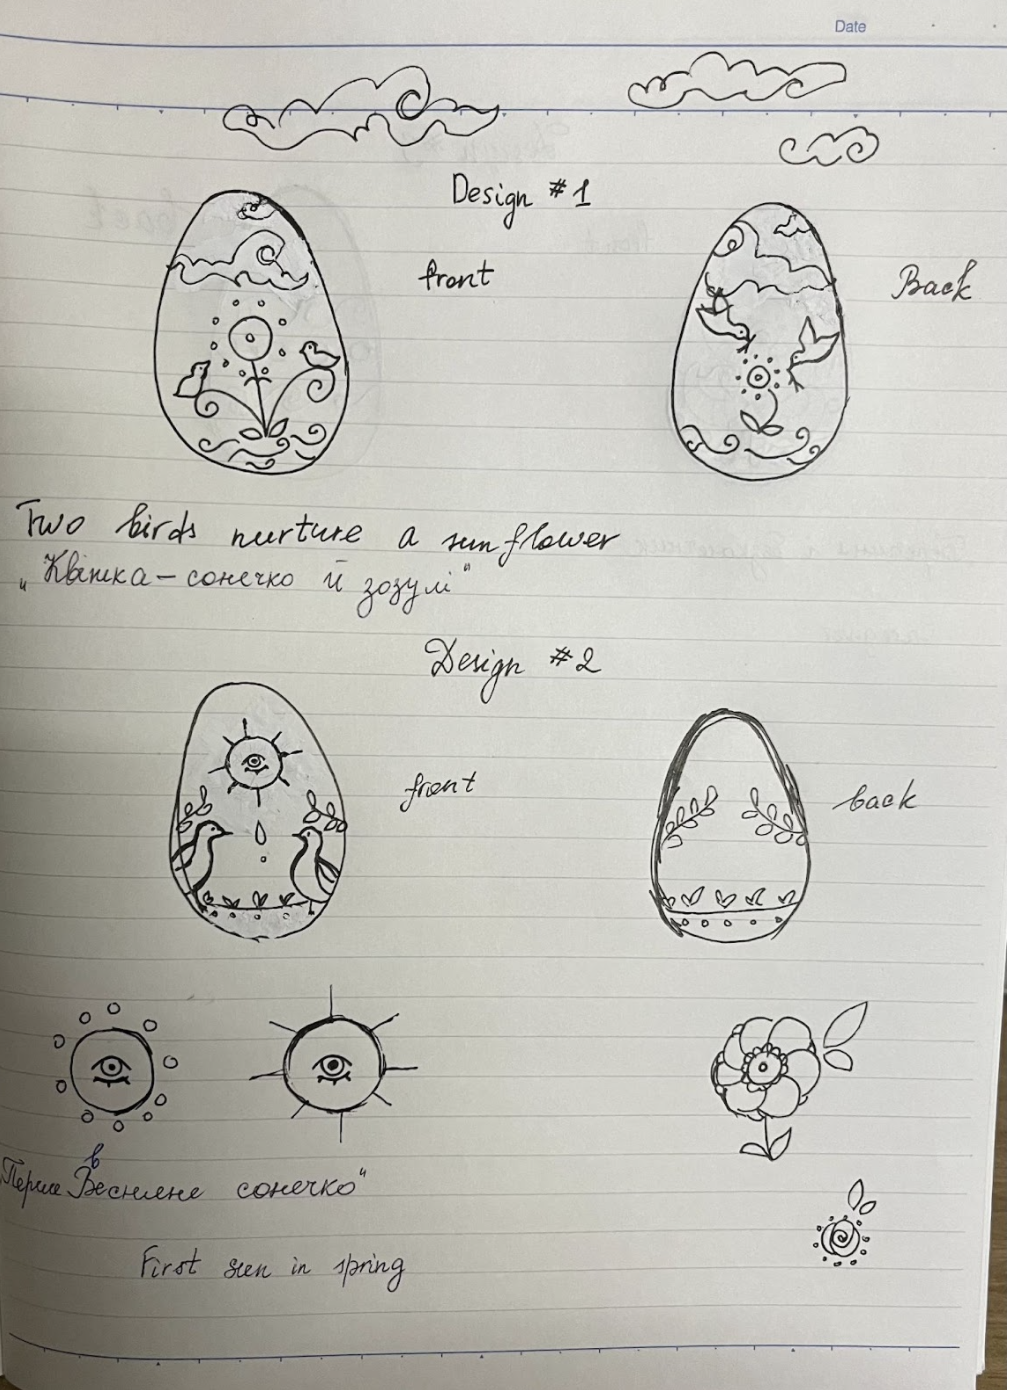 Date
Design #1
front
Back
Two birds nurture a sunflower
„Квітка – сонечко й зозулі"
Design #2
front
back
в
„Перше Веснняне сонечко"
First sun in spring